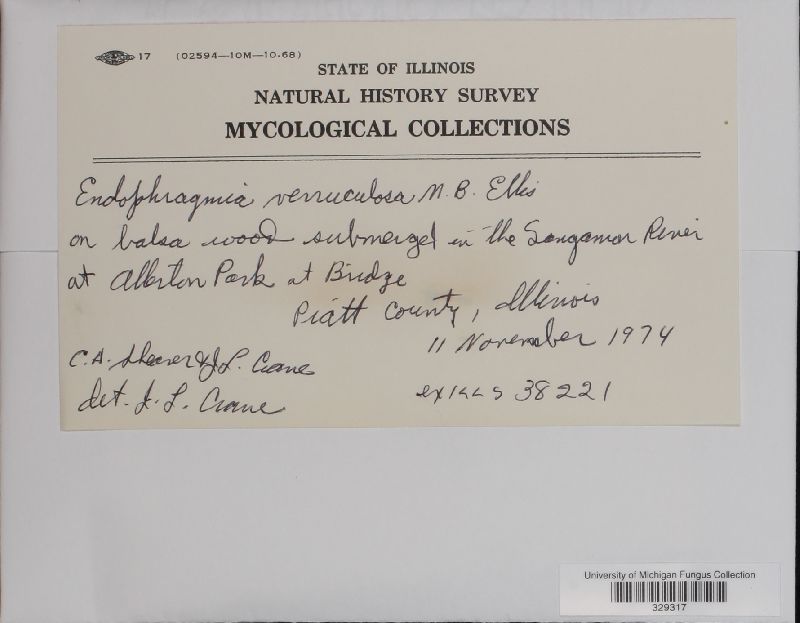 17 (02594—10M—10-68)
STATE OF ILLINOIS
NATURAL HISTORY SURVEY
MYCOLOGICAL COLLECTIONS
Endophragmia verruculosa M. B. Ellis
on balsa wood submerged in the Sangamon River
at Allerton Park at Bridge
Piatt County, Illinois
11 November 1974
C.A. Shearer & J. L. Crane
det. J. L. Crane
ex ILLS 38221
University of Michigan Fungus Collection
329317